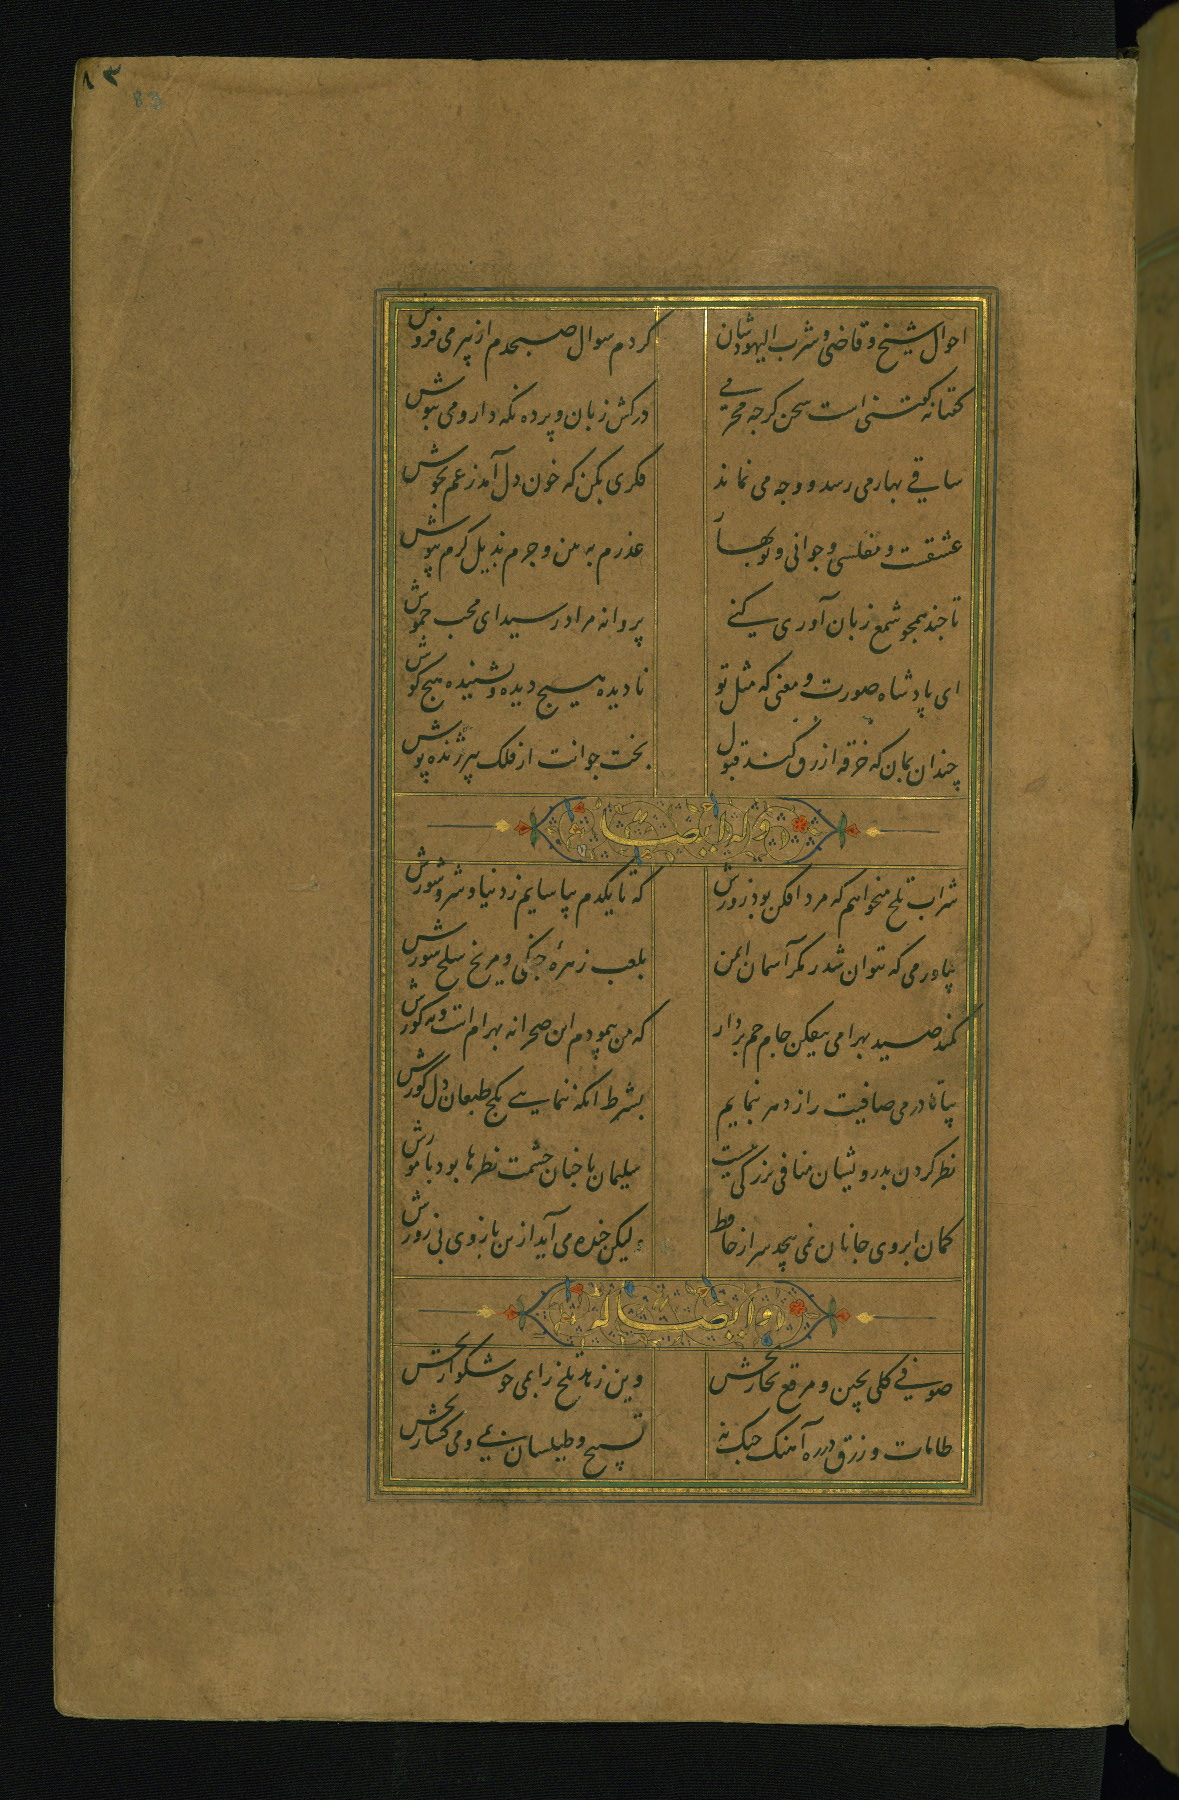 ۸۳
83
احوال شیخ و قاضی و شرب الیهودشان
کردم سوال صبحدم از پیر می فروش
گفتا نه گفتنی است سخن گرچه محرمی
درکش زبان و پرده نکه دار و می بنوش
ساقی بهار می رسد و وجه می نماند
فکری بکن که خون دل آمد ز غم بجوش
عشقست و مفلسی و جوانی و نوبهار
عذرم بذیر و جرم بذیل کرم بپوش
تا چند همچو شمع زبان آوری کنی
پروانه مراد رسید ای محب خموش
ای پادشاه صورت و معنی که مثل تو
نادیده هیچ دیده و نشنیده هیچ کوش
چندان بمان که خرقه ازرق کند قبول
بخت جوانت از فلک پیر ژنده پوش
وله ایضا
شراب تلخ میخواهم که مرد افکن بود زورش
که تا یکدم بیاسایم ز دنیا و شر و شورش
بیاور می که نتوان شد ز مکر آسمان ایمن
بلعب زهرهٔ چنکی و مریخ سلحشورش
کمند صید بهرامی بیفکن جام جم بردار
که من پیمودم این صحرا نه بهرام است و نه کورش
بیا تا در می صافیت راز دهر بنمایم
بشرط آنکه ننمایی بکج طبعان دل کورش
نظر کردن بدرویشان منافی بزرکی نیست
سلیمان با چنان حشمت نظرها بود با مورش
کمان ابروی جانان نمی پیچد سر از حافظ
ولیکن خنده می آید ازین بازوی بی زورش
وله ایضا
صوفی کلی بچین و مرقع بخار بخش
وین زهد تلخ را بمی خوشکوار بخش
طامات و زرق در ره آهنک چنک نه
تسبیح و طیلسان بمی و می کسار بخش